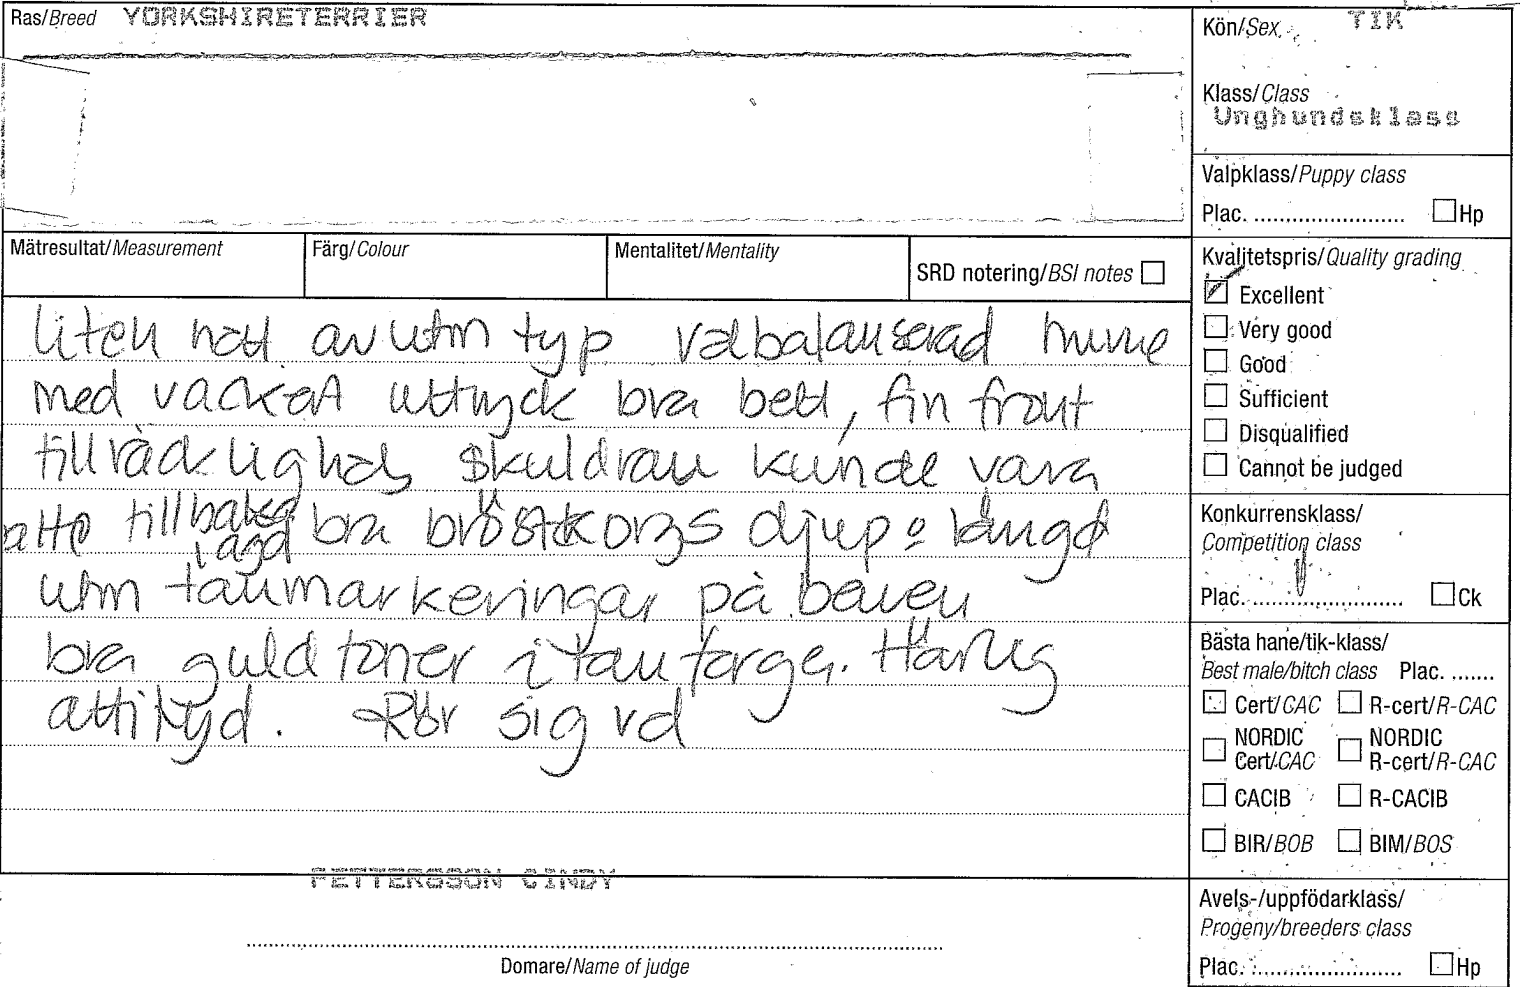 Ras/Breed YORKSHIRETERRIER
Kön/Sex TIK
Klass/Class
Unghundsklass
Valpklass/Puppy class
Plac. ........................ Hp
Mätresultat/Measurement
Färg/Colour
Mentalitet/Mentality
SRD notering/BSI notes
Kvalitetspris/Quality grading
Excellent
Very good
Good
Sufficient
Disqualified
Cannot be judged
liten nätt av utm typ välbalanserad huvue
med vackert uttryck bra bett, fin front
tillräcklig hals skuldran kunde vara
ngt tillbaka
lagd bra bröstkorgs djup o längd
utm tanmarkeringar på benen
bra guld toner i tanfärgen. Härlig
attityd. Rör sig väl
Konkurrensklass/
Competition class
Plac. ........................ Ck
Bästa hane/tik-klass/
Best male/bitch class Plac. .......
Cert/CAC R-cert/R-CAC
NORDIC NORDIC
Cert/CAC R-cert/R-CAC
CACIB R-CACIB
BIR/BOB BIM/BOS
PETTERSSON CINDY
Domare/Name of judge
Avels-/uppfödarklass/
Progeny/breeders class
Plac. ........................ Hp